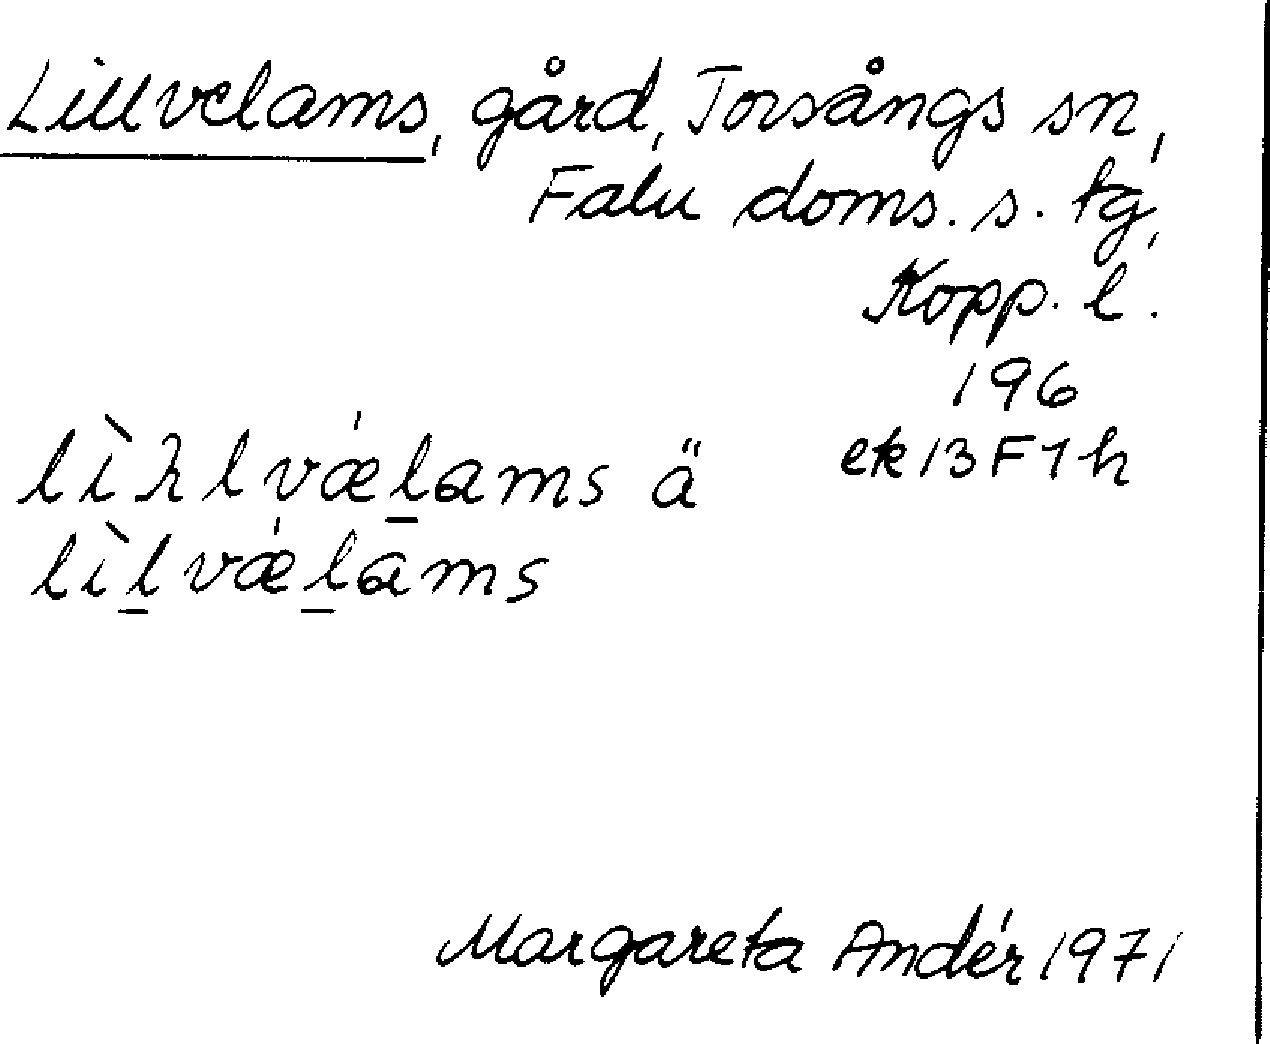 Lillvelams, gård, Torsångs sn,
Falu doms. s. tg,
Kopp. l.
196
lìλlvǽl̲ams ä
ek 13 F 1 h
lìl̲vǽl̲ams
Margareta Andér 1971